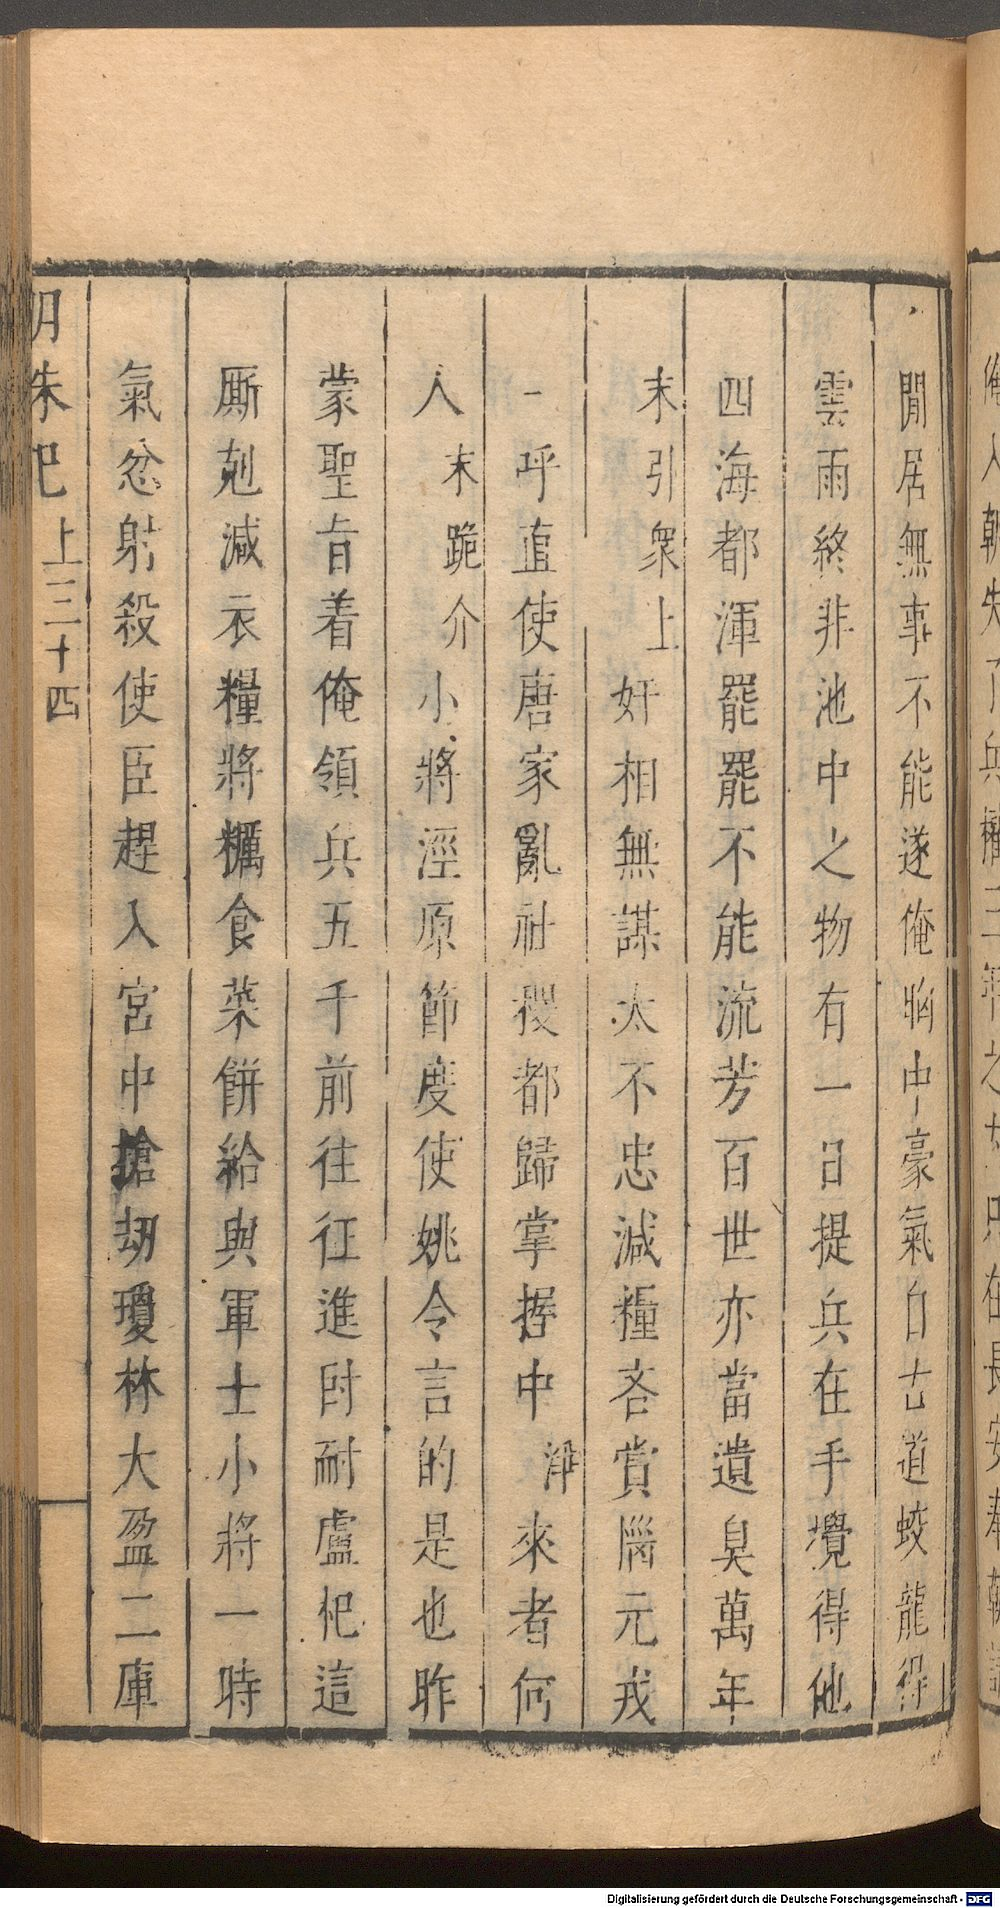 閒居無事不能遂俺胸中豪氣自古道蛟龍得
雲雨終非池中之物有一日提兵在手攪得他
四海都渾罷罷不能流芳百世亦當遺臭萬年
末引衆上奸相無謀太不忠減糧吝賞惱元戎
一呼直使唐家亂社稷都歸掌握中淨來者何
人末跪介小將涇原節度使姚令言的是也昨
蒙聖旨着俺領兵五千前往征進時耐盧杞這
厮剋減衣糧將糲食菜餅給與軍士小將一時
氣忿射殺使臣趕入宮中搶刼瓊林大盈二庫
明朱巳上三十四
Digitalisierung gefördert durch die Deutsche Forschungsgemeinschaft - DFG